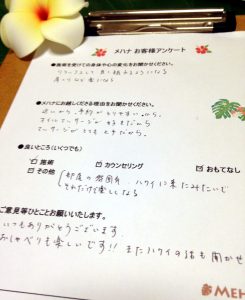 メハナ お客様アンケート
●施術を受けての身体や心の変化をお聞かせください。
リラックスして
●メハナにお越しくださる理由をお聞かせください。
近いから、予約がとりやすいから。
オイルマッサージが好きだから
マッサージがとても上手だから。
●良いところ(いくつでも)
施術 カウンセリング おもてなし
その他 部屋の雰囲気、ハワイに来たみたいで
それだけで楽しくなる
ご意見等ひとことお願いいたします。
いつもありがとうございます
おしゃべりも楽しいです!! またハワイの話も聞かせ
MEH